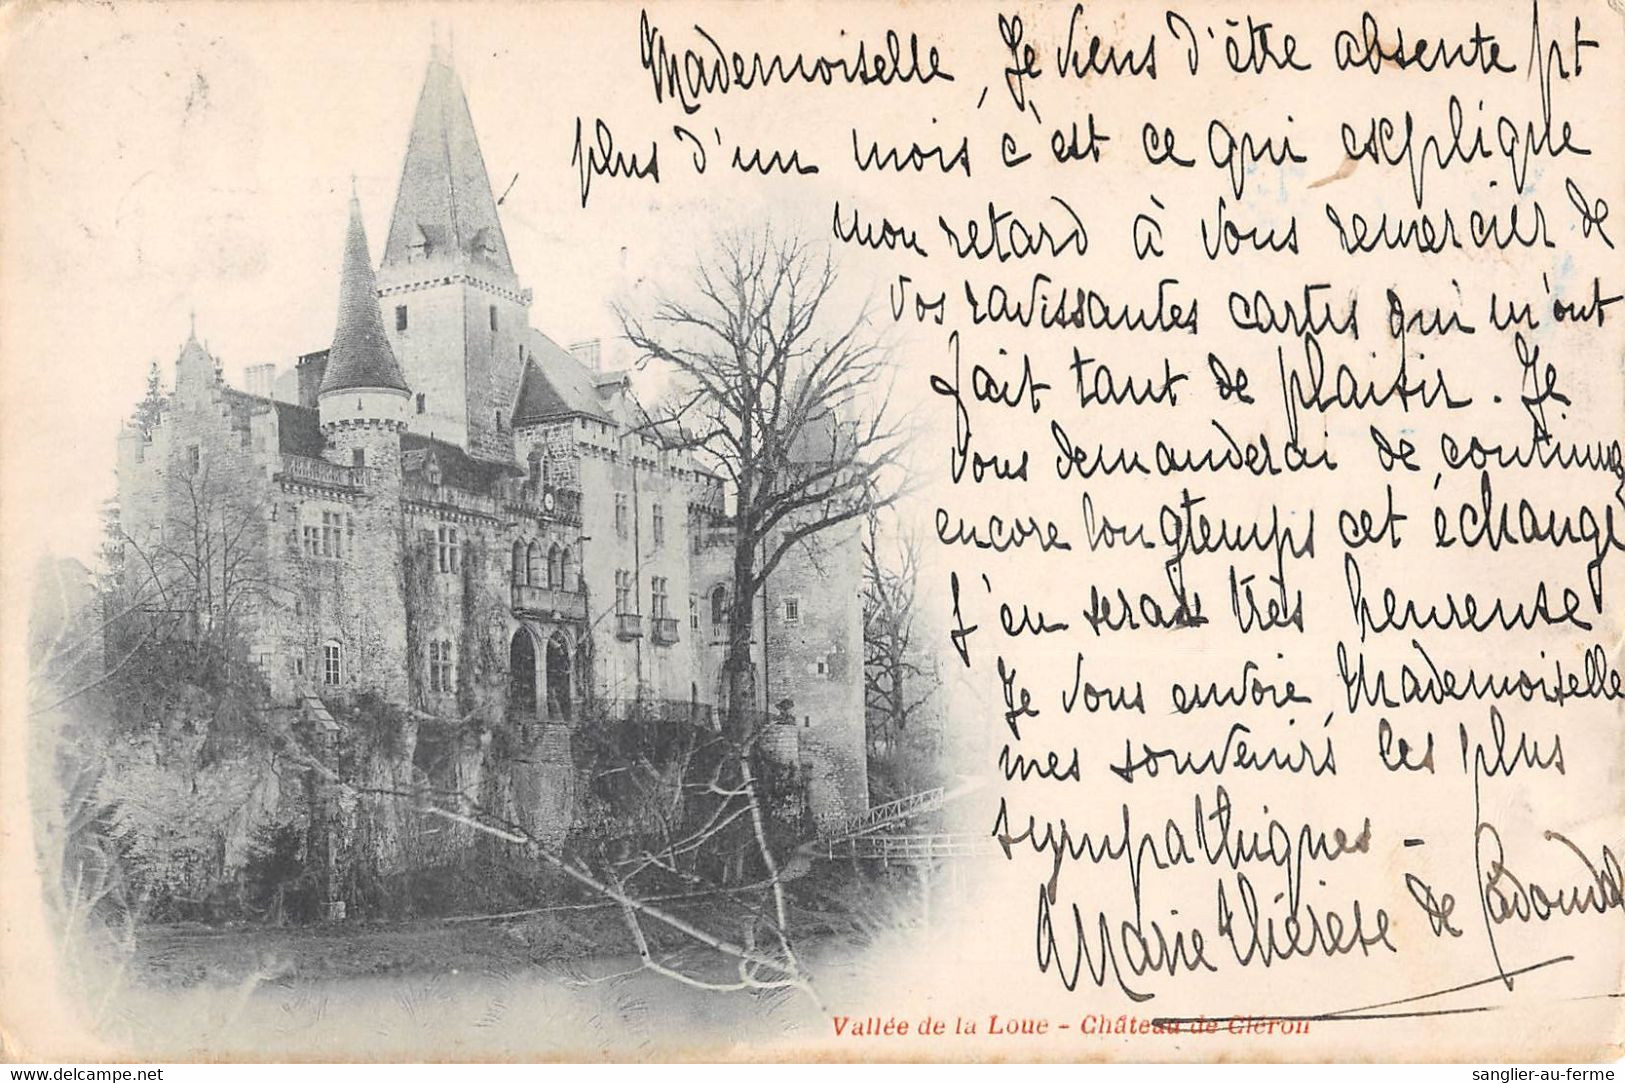 Mademoiselle, Je viens d'être absente pt
plus d'un mois c'est ce qui explique
mon retard à vous remercier de
vos ravissantes cartes qui m'ont
fait tant de plaisir. Je
vous demanderai de continuer
encore longtemps cet échange
j'en serais très heureuse
Je vous envoie, Mademoiselle
mes souvenirs les plus
sympathiques -
Marie Thérèse de Cadoudal
Vallée de la Loue - Château de Cléron
delcampe.net
sanglier-au-ferme